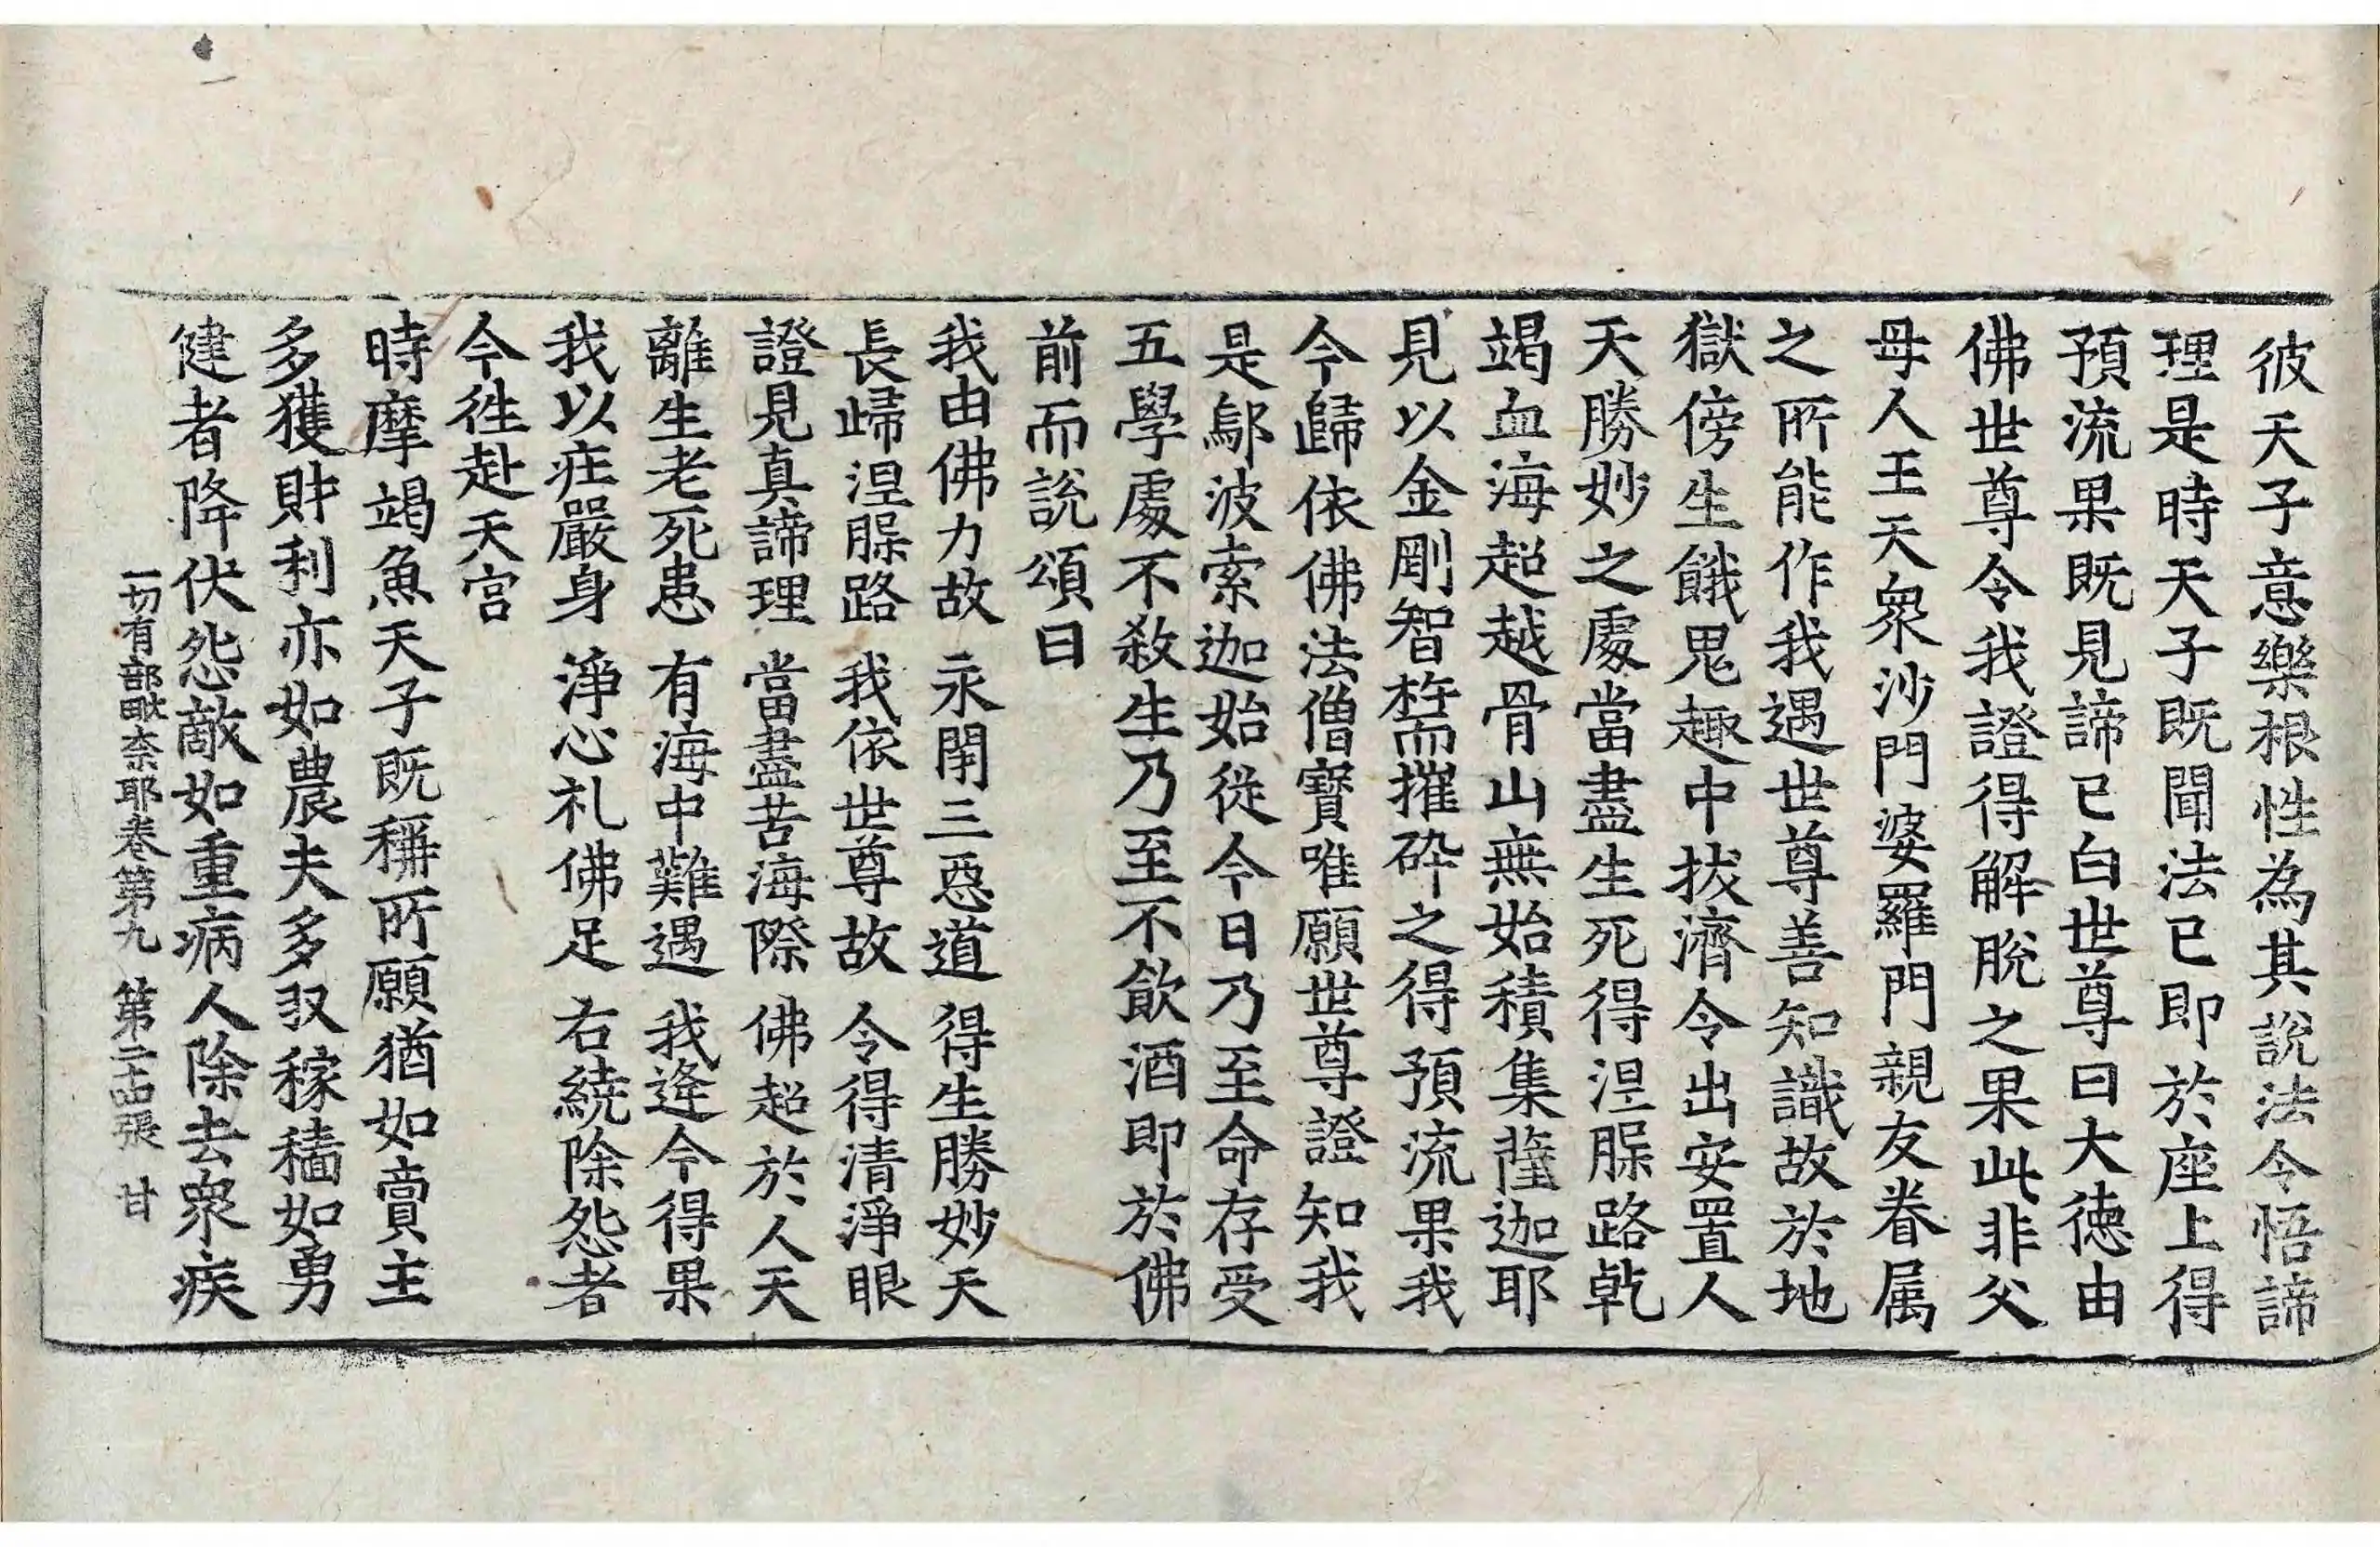 彼天子意樂根性為其說法令悟諦
理是時天子既聞法已即於座上得
預流果既見諦已白世尊曰大德由
佛世尊令我證得解脫之果此非父
母人王天衆沙門婆羅門親友眷属
之所能作我遇世尊善知識故於地
獄傍生餓鬼趣中拔濟令出安置人
天勝妙之處當盡生死得涅槃路乾
竭血海超越骨山無始積集薩迦耶
見以金剛智杵而摧碎之得預流果我
今歸依佛法僧寶唯願世尊證知我
是鄔波索迦始從今日乃至命存受
五學處不殺生乃至不飲酒即於佛
前而說頌曰
我由佛力故 永閉三惡道 得生勝妙天
長歸涅槃路 我依世尊故 令得清淨眼
證見真諦理 當盡苦海際 佛超於人天
離生老死患 有海中難遇 我逢今得果
我以莊嚴身 淨心礼佛足 右繞除怨者
今往赴天宮
時摩竭魚天子既稱所願猶如賣主
多獲財利亦如農夫多収稼穡如勇
健者降伏怨敵如重病人除去衆疾
一切有部毗奈耶卷第九 第二十四張 甘